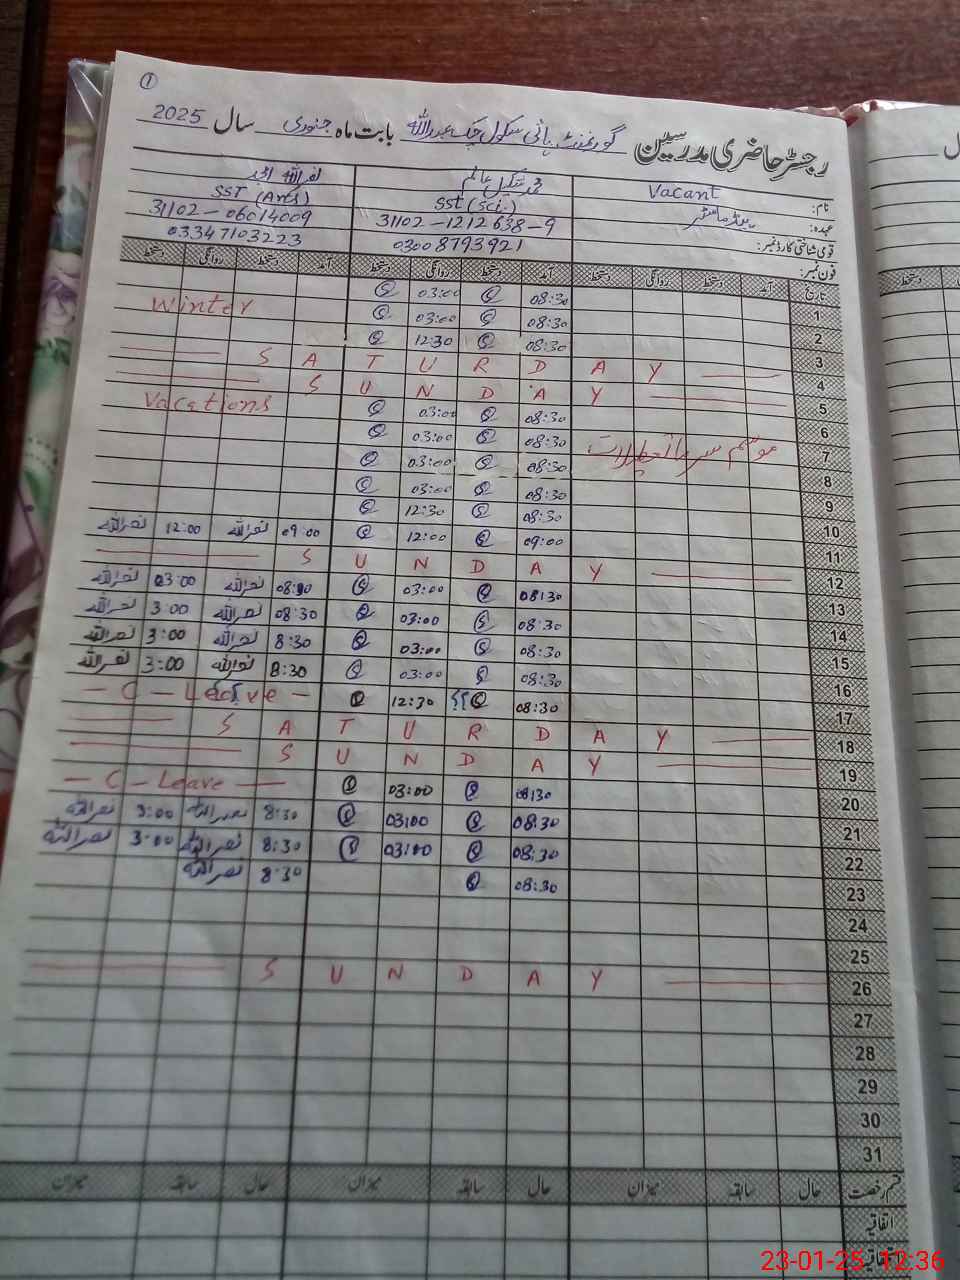 ①
رجسٹر حاضری مدرسین گورنمنٹ ہائی سکول چک عبداللہ بابت ماہ جنوری سال 2025
نام: Vacant محمد شکیل عالم نصر اللہ
عہدہ: ہیڈ ماسٹر SST (Sci.) SST (Arts)
قومی شناختی کارڈ نمبر: 31102-1212638-9 31102-06014009
فون نمبر: 03008793921 03347103223
تاریخ آمد دستخط روانگی دستخط آمد دستخط روانگی دستخط آمد دستخط روانگی دستخط
1 08:30 03:00
2 08:30 03:00 Winter
3 08:30 12:30
4 S A T U R D A Y
5 S U N D A Y
6 08:30 03:00 Vacations
7 08:30 03:00 موسم سرما تعطیلات
8 08:30 03:00
9 08:30 03:00
10 08:30 12:30
11 09:00 12:00 09:00 نصراللہ 12:00 نصراللہ
12 S U N D A Y
13 08:30 03:00 08:30 نصراللہ 03:00 نصراللہ
14 08:30 03:00 08:30 نصراللہ 3:00 نصراللہ
15 08:30 03:00 8:30 نصراللہ 3:00 نصراللہ
16 08:30 03:00 8:30 نصراللہ 3:00 نصراللہ
17 08:30 12:30 - C - Leave -
18 S A T U R D A Y
19 S U N D A Y
20 08:30 03:00 - C - Leave -
21 08:30 03:00 8:30 نصراللہ 3:00 نصراللہ
22 08:30 03:00 8:30 نصراللہ 3:00 نصراللہ
23 08:30 8:30 نصراللہ
24
25
26 S U N D A Y
27
28
29
30
31
قسم رخصت حال سابقہ میزان حال سابقہ میزان حال سابقہ میزان
اتفاقیہ
23-01-25 12:36